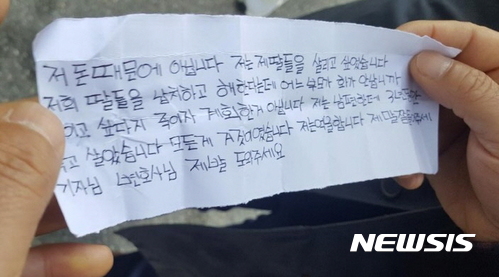 저 돈 때문에 아닙니다 저는 제 딸들을 살리고 싶었습니다
저희 딸들을 납치하고 해한다는데 어느 부모가 화가 안납니까
하고 싶다지 죽이자 계획한거 아닙니다 저는 남편한테
살았습니다 모든게 A것이였습니다 저는 억울합니다 제
기자님 변호사님 제발 도와주세요
NEWSIS